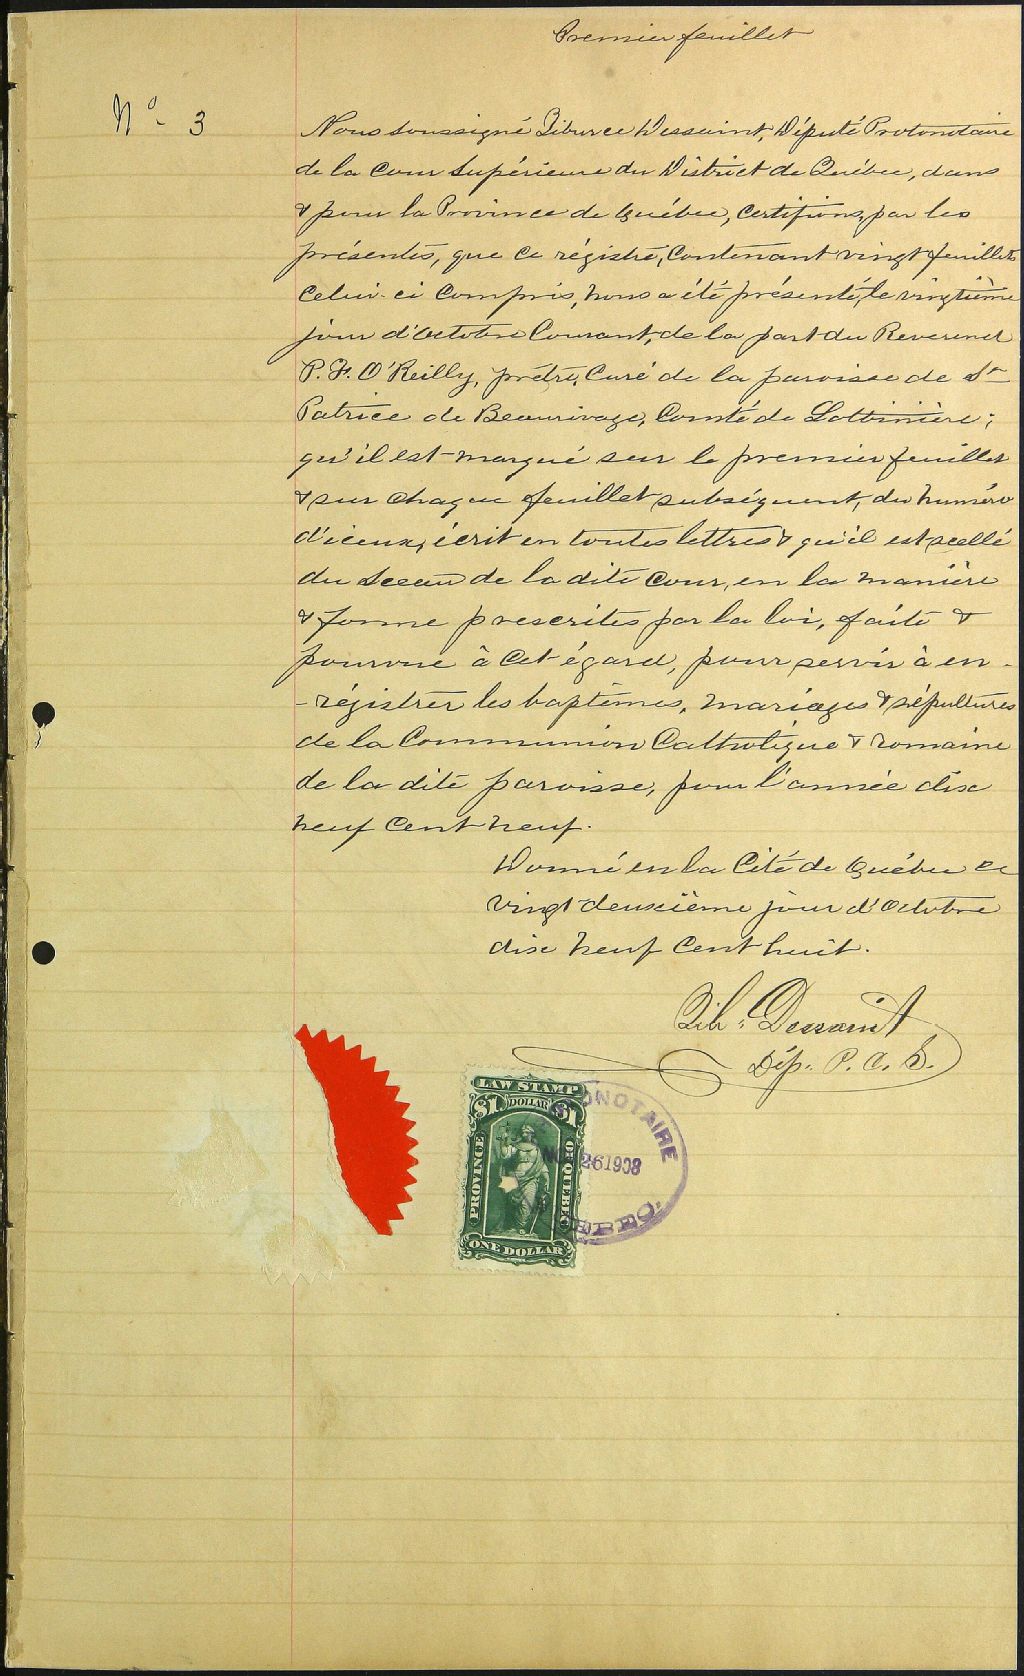 Premier feuillet
No- 3
Nous soussigné Tiburce Dessaint, Député Protonotaire
de la Cour Supérieure du District de Québec, dans
& pour la Province de Québec, Certifions, par les
présentes, que ce régistre, Contenant vingt feuillets
Celui-ci Compris, nous a été présenté, le vingtième
jour d'Octobre Courant, de la part du Reverend
P. F. O'Reilly, prêtre, Curé de la paroisse de St
Patrice de Beaurivage, Comté de Lotbinière;
qu'il est marqué sur le premier feuillet
& sur chaque feuillet subséquent, du numéro
d'iceux, écrit en toutes lettres & qu'il est scellé
du Sceau de la dite Cour, en la manière
& forme prescrites par la loi, faite &
pourvue à Cet égard, pour servir à en-
-régistrer les baptêmes, mariages & sépultures
de la Communion Catholique & romaine
de la dite paroisse, pour l'année dix
neuf Cent neuf.
Donné en la Cité de Québec ce
vingt deuxième jour d'Octobre
dix neuf Cent huit.
Tib. Dessaint
Dép. P. C. S.
LAW STAMP
$1 DOLLAR $1
PROVINCE
OF QUEBEC
ONE DOLLAR
ONOTAIRE
26 1908
EBEC